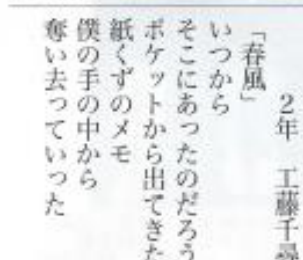 2年　工藤千尋
「春風」
いつから
そこにあったのだろう
ポケットから出てきた
紙くずのメモ
僕の手の中から
奪い去っていった